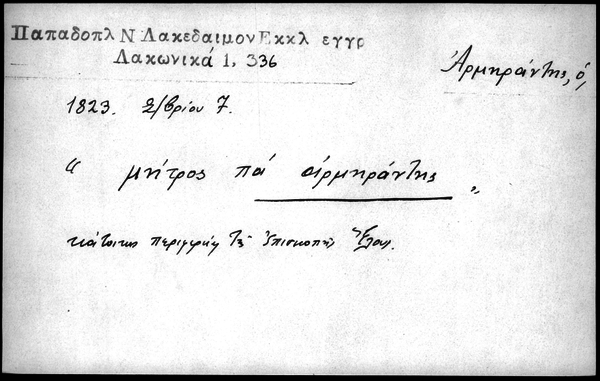 Παπαδοπλ Ν Λακεδαιμον Εκκλ εγγρ
Λακωνικά 1, 336
Ἀρμπράντης, ὁ,
1823. 2/βρίου 7.
“ μήτρος πὰ ἀρμπράντης „
κάτοικος περιγραφή τῆς Ἐπισκοπῆς Ἕλους.